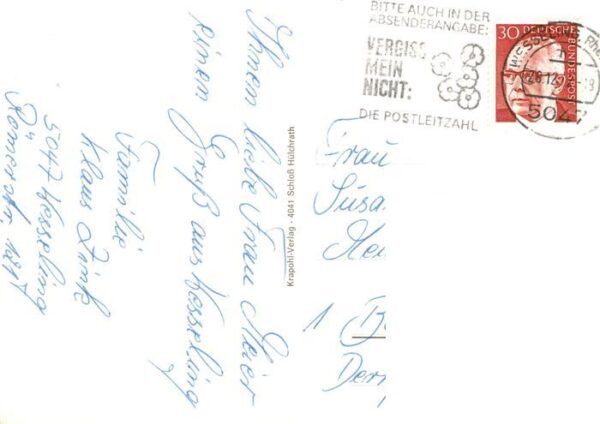 BITTE AUCH IN DER
ABSENDERANGABE:
VERGISS
MEIN
NICHT:
DIE POSTLEITZAHL
30 DEUTSCHE
BUNDESPOST
5047
Ihnen liebe Frau Meier
einen Gruß aus Wesseling
Familie
Klaus Zink
5047 Wesseling
Römerstr. 121
Krapohl-Verlag · 4041 Schloß Hülchrath
Frau
Susa
Mei
1